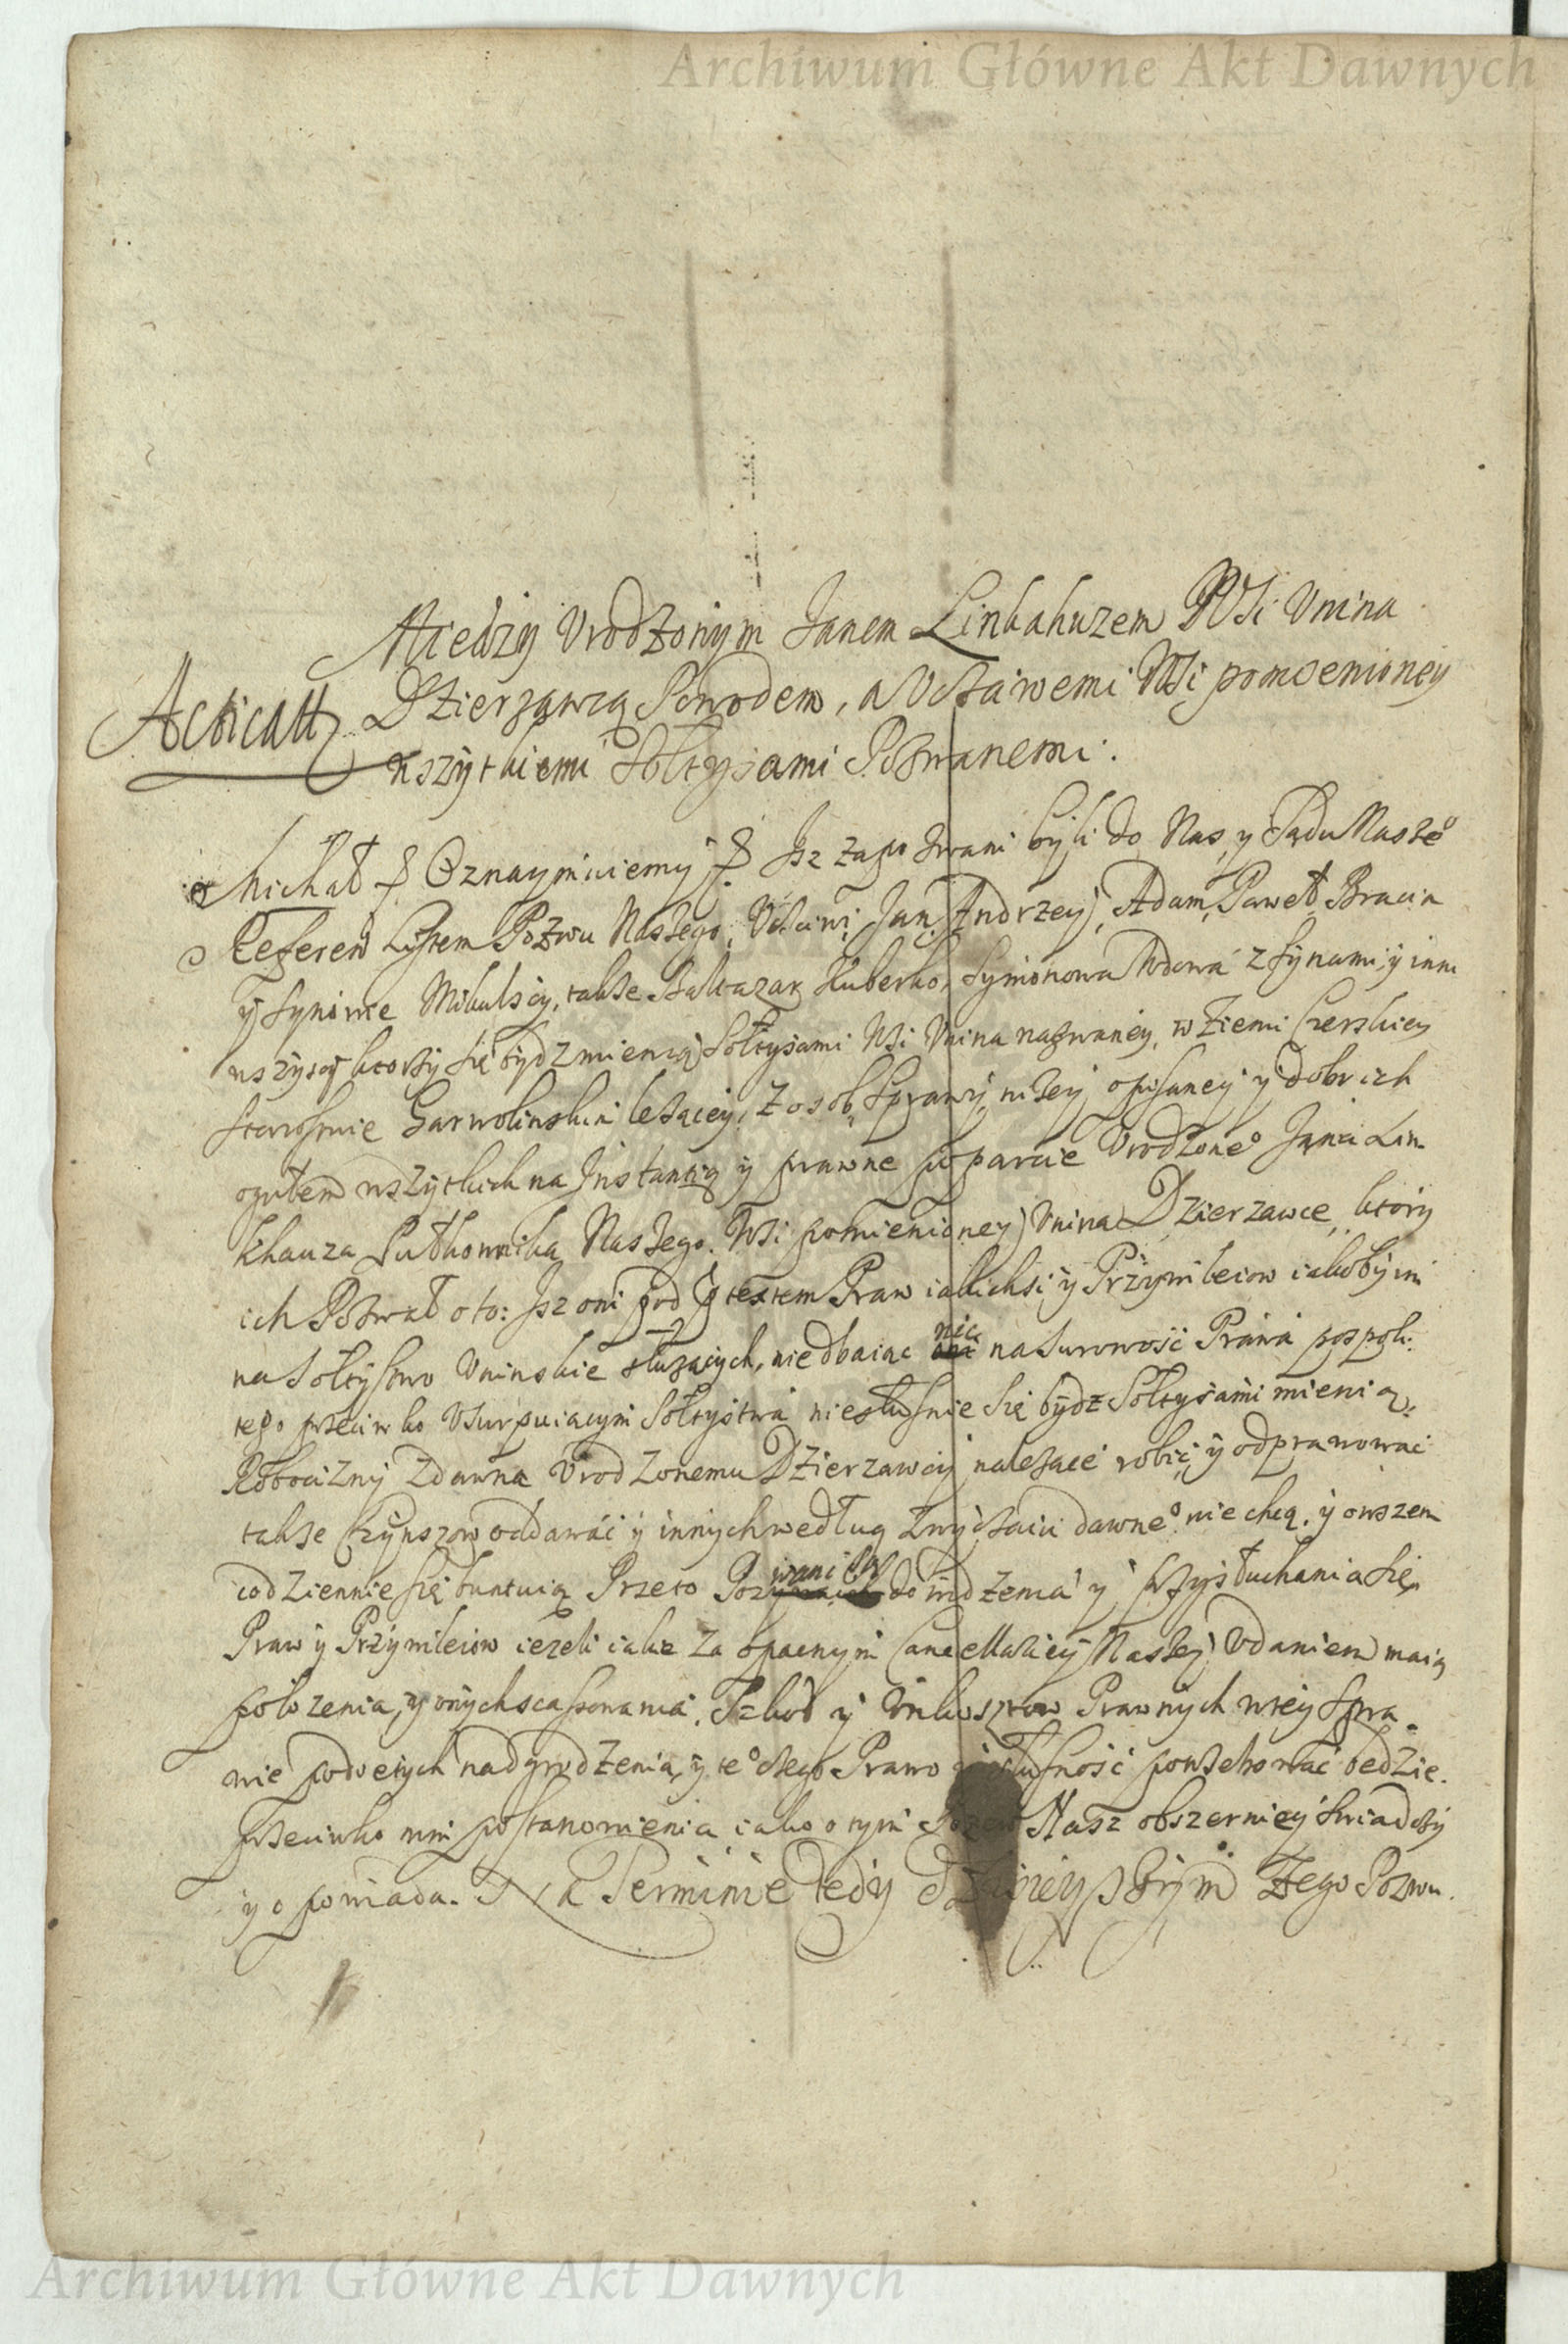 Archiwum Główne Akt Dawnych
Miedzy Vrodzonym Janem Linkahuzem Wsi Vnina
Dzierzawcą Powodem, a Vczciwemi Wsi pomienioney
Acticatt
wszytkiemi Sołtysami Pozwanemi.
Michał Oznaymuiemy Jsz zapozwani byli do Nas y Sądu Nasze°
Referen Listem Pozwu Naszego, Vczciwi Jan, Andrzey, Adam, Paweł Bracia
y Synowie Mikulscy, także Baltazar Kuberko, Symonowa Wdowa z Synami, y inni
wszyscy ktorzy się bydz mienią Sołtysami Wsi Vnina nazwaney, w Ziemi Czerskiey
Starostwie Garwolinskim leżącey, z osob Sprawy niżey opisaney y dobr ich
ogułem wszytkich na Jnstantią y prawne poparcie Vrodzone° Jana Lin
khauza Pułkownika Naszego, Wsi pomienioney Vnina Dzierzawce, ktory
ich Pozwał oto: Jsz oni pod Praetextem Praw iakichsi y Przywileiow iakoby im
na Sołtystwo Vninskie służących, nie dbaiąc nic na Surowość Prawa pospoli:
tego przeciwko Vsurpuiącym Sołtystwa niesłusznie się bydz Sołtysami mienią,
Robocizny zdawna Vrodzonemu Dzierzawcy należące robić, y odprawować
także Czynszow oddawać y innych według zwyczaiu dawne° nie chcą, y owszem
codziennie się buntuią Przeto Pozwani są do widzenia y przysłuchania się
Praw y Przywileiow ieżeli iakie za opacznym Cancellariey Naszey Vdaniem maią
położenia, y onych scassowania, Szkod y Vnkosztow Prawnych w tey Spra
wie podiętych nadgrodzenia, y te° czego Prawo y słuszność potrzebować bedzie
przeciwko nim postanowienia iako o tym Pozew Nasz obszerniey świadczy
y opowiada. Na Terminie tedy dzisieyszym Zego Pozwu
Archiwum Główne Akt Dawnych